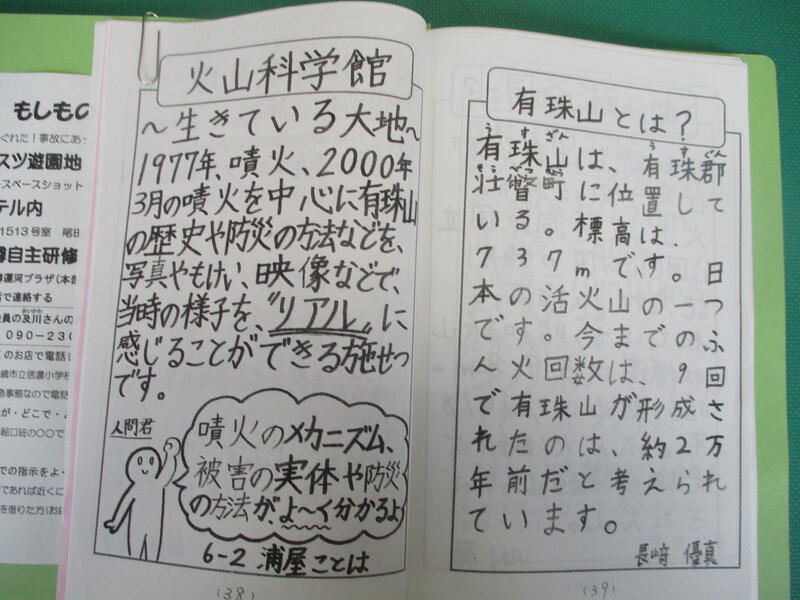 火山科学館
〜生きている大地〜
1977年、噴火、2000年
3月の噴火を中心に有珠山
の歴史や防災の方法などを、
写真やもけい、映像などで、
当時の様子を、〝リアル〟に
感じることができる施せつ
です。
人間君
噴火のメカニズム、
被害の実体や防災
の方法が、よ〜く分かるよ
6-2 浦屋ことは
(38)
有珠山とは?
有珠山は、有珠郡
壮瞥町に位置して
いる。標高は、
737mです。日
本の活火山の一つ
です。今までのふ
ん火回数は、9回
で有珠山が、形成さ
れたのは、約2万
年前だと考えられ
ています。
長崎 優真
(39)
もしもの
スツ遊園地
テル内
1513号室 尾田
尊自主研修
で連絡する
員の及川さんの
090-230
くのお店で電話
歳市立信濃小学校
が・どこで・
組口班の〇〇で
での指示をよ・
であれば近くに
を借りた方